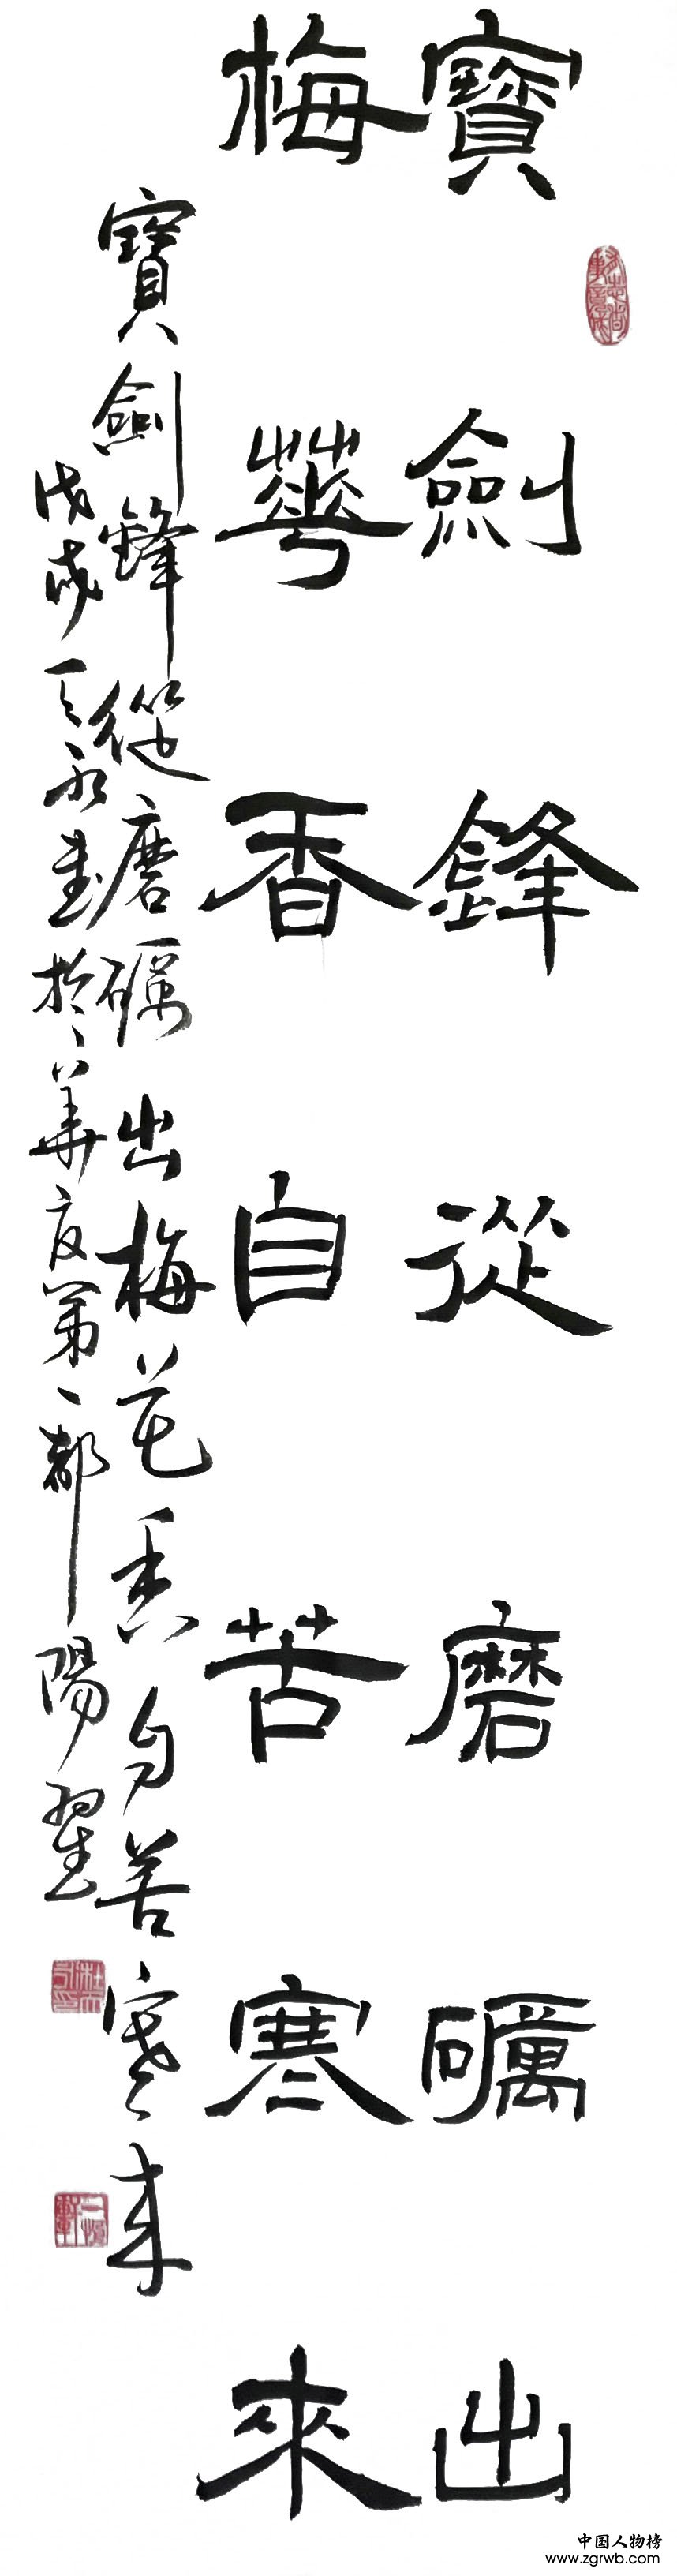 寶劍鋒從磨礪出
梅華香自苦寒來
寶劍鋒從磨礪出梅花香自苦寒來
戊戌 永書於華夏第一都陽翟
中国人物榜
www.zgrwb.com